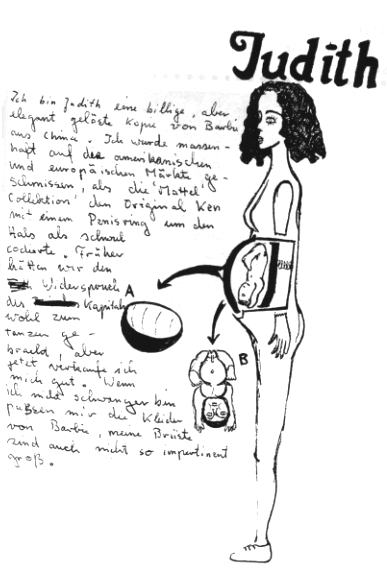 Judith
Ich bin Judith eine billige, aber
elegant gelöste Kopie von Barbie
aus China. Ich wurde massen-
haft auf die amerikanischen
und europäischen Märkte ge-
schmissen, als die 'Mattel'
Collektion den Original Ken
mit einem Penisring um den
Hals als schwul
codierte. Früher
hätten wir den
Widerspruch
des Kapitals
wohl zum
tanzen ge-
bracht, aber
jetzt verkaufe ich
mich gut. Wenn
ich nicht schwanger bin
passen mir die Kleider
von Barbie, meine Brüste
sind auch nicht so impertinent
groß.
A
B